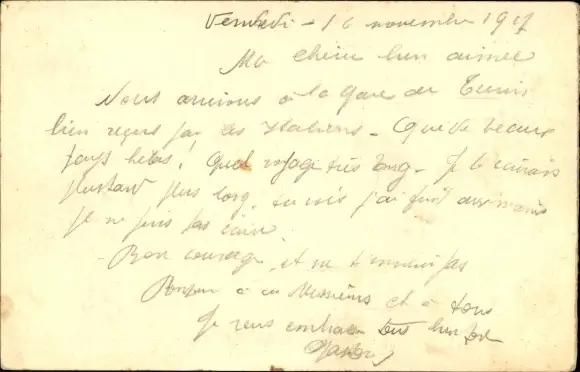 Vendredi - 16 novembre 1917
Ma chérie bien aimée
Nous arrivons à la gare de Turin
bien reçus par les Italiens - Quel beau
pays hélas! Quel voyage très long - Je t'écrirais
plustard plus long, tu vois j'ai
je ne puis pas écrire
Bon courage et ne t'ennuie pas
Bonjour à ces Messieurs et à tous
Je vous embrasse tous bien fort